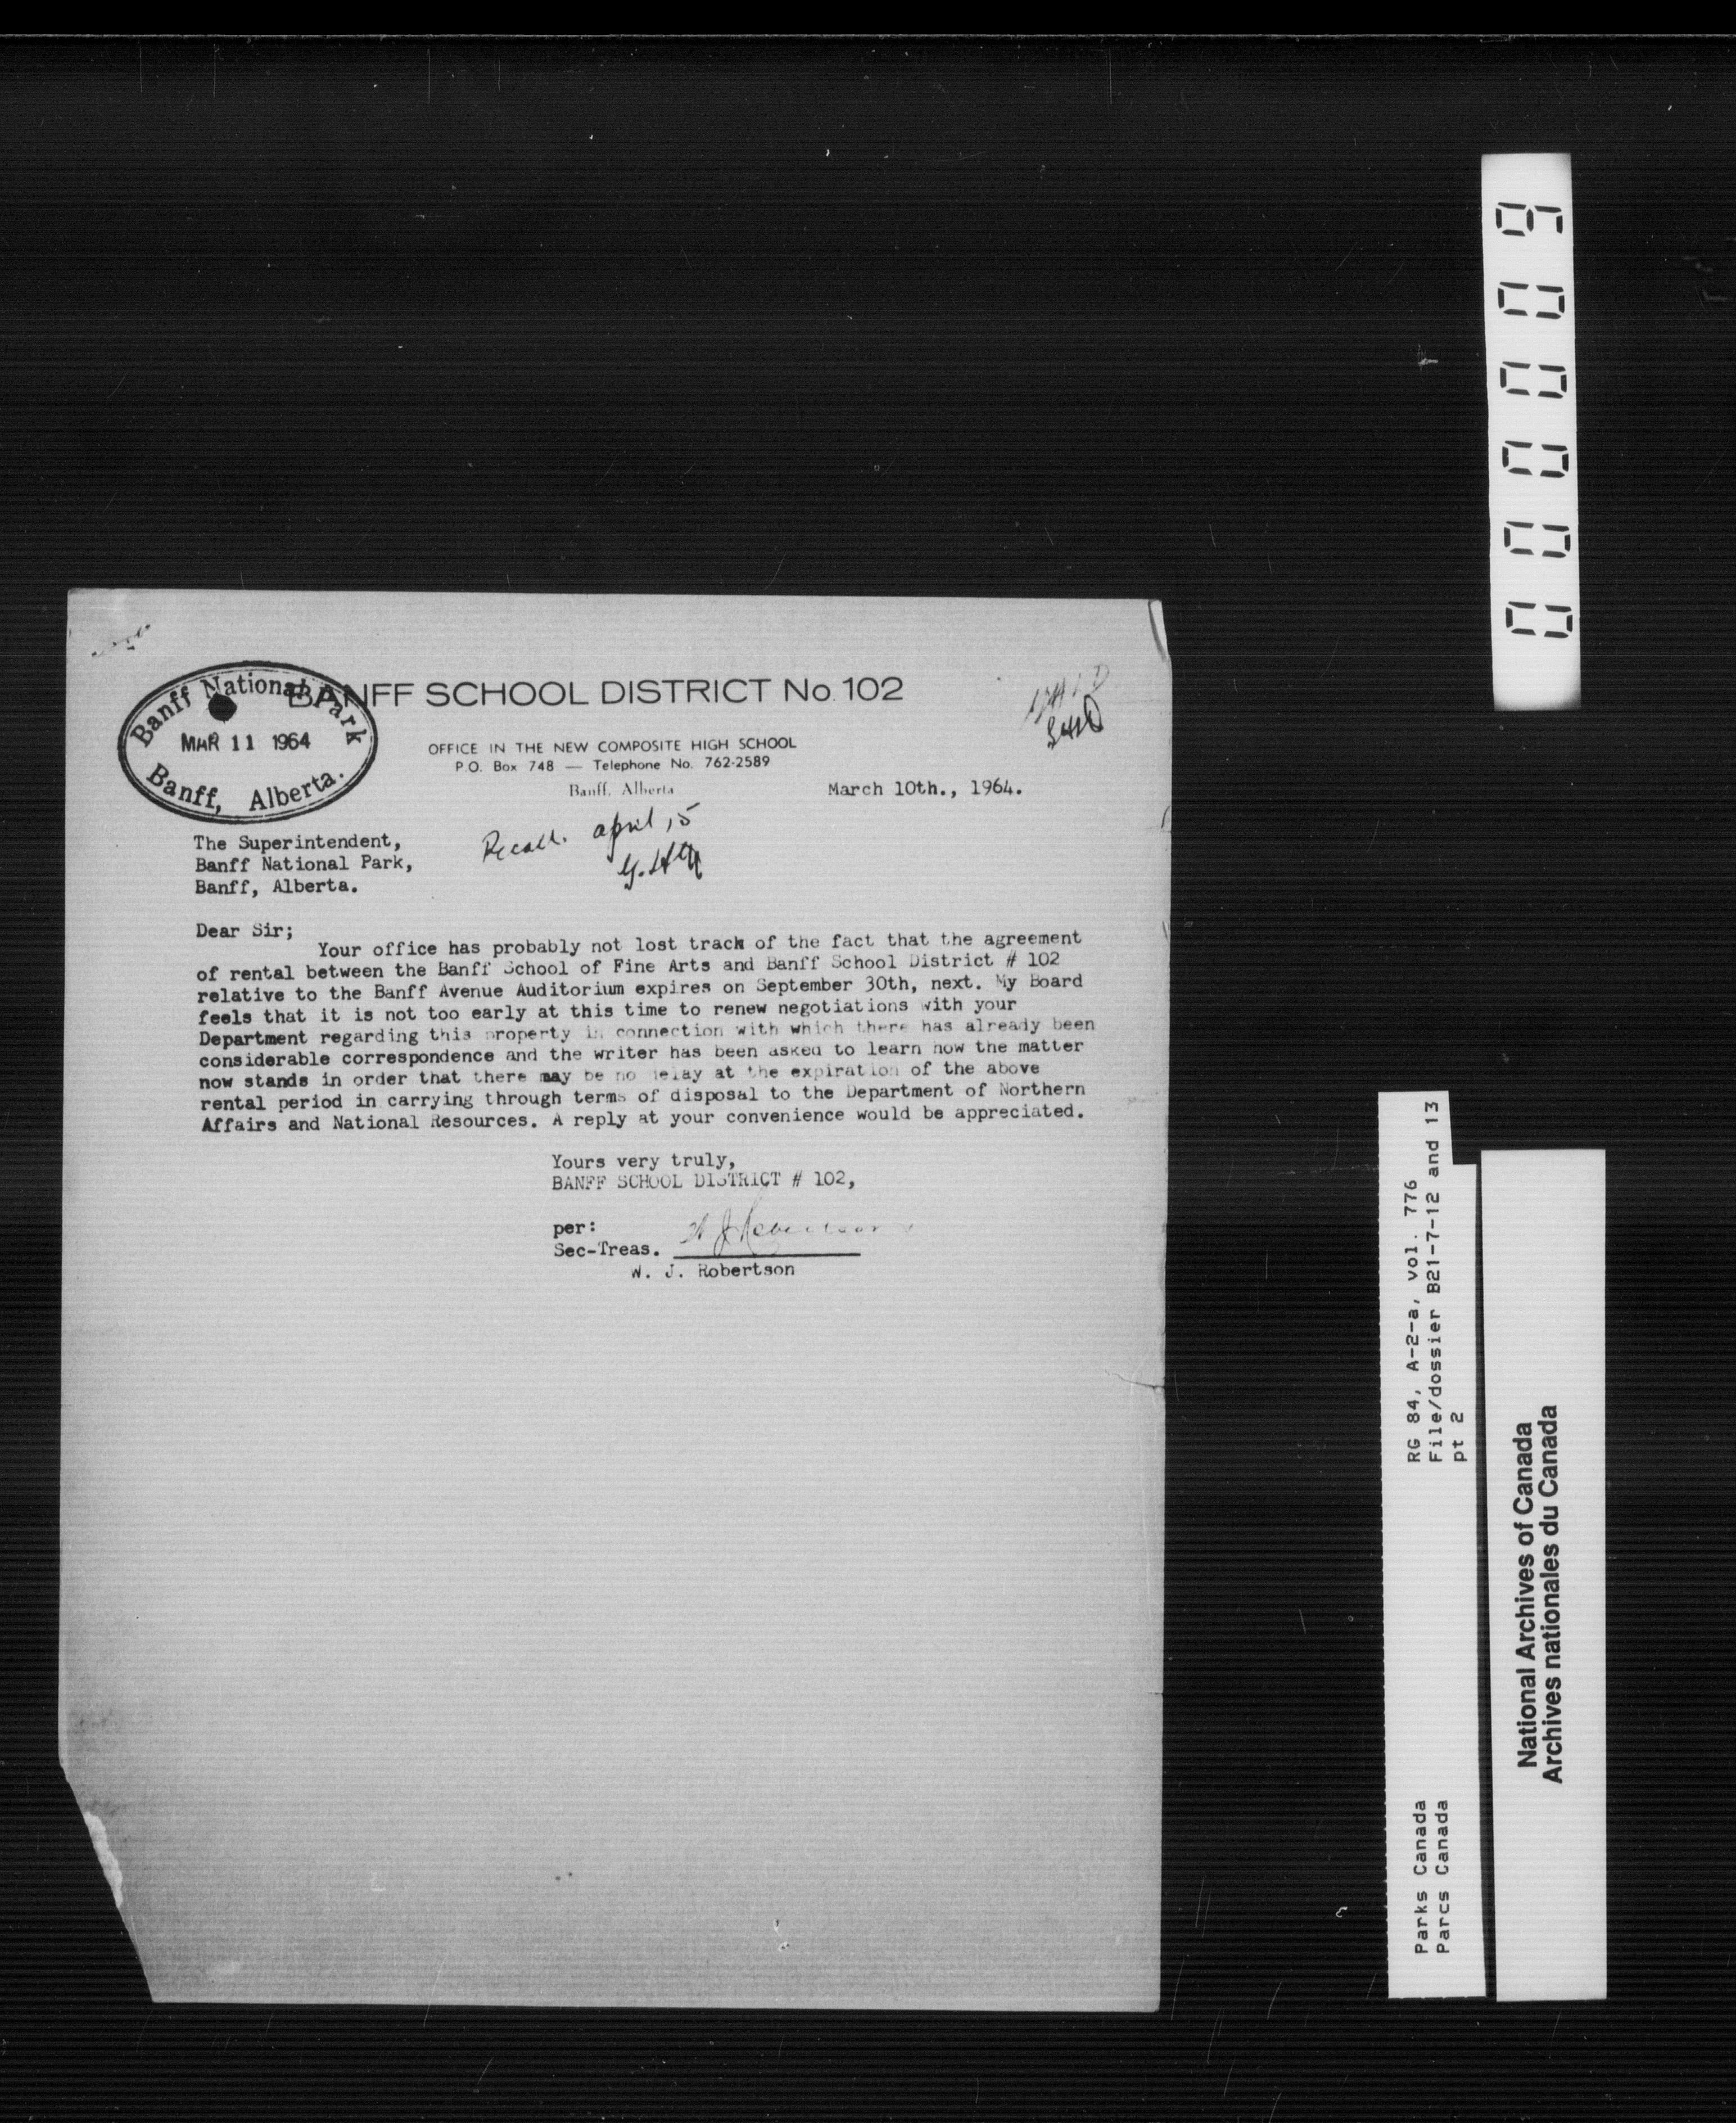 BANFF SCHOOL DISTRICT No. 102
Banff National Park
MAR 11 1964
Banff, Alberta.
OFFICE IN THE NEW COMPOSITE HIGH SCHOOL
P.O. Box 748 — Telephone No. 762-2589
Banff, Alberta
March 10th., 1964.
Recall. april 15
The Superintendent,
Banff National Park,
Banff, Alberta.
Dear Sir;
Your office has probably not lost track of the fact that the agreement
of rental between the Banff School of Fine Arts and Banff School District # 102
relative to the Banff Avenue Auditorium expires on September 30th, next. My Board
feels that it is not too early at this time to renew negotiations with your
Department regarding this property in connection with which there has already been
considerable correspondence and the writer has been asked to learn how the matter
now stands in order that there may be no delay at the expiration of the above
rental period in carrying through terms of disposal to the Department of Northern
Affairs and National Resources. A reply at your convenience would be appreciated.
Yours very truly,
BANFF SCHOOL DISTRICT # 102,
per: W J Robertson
Sec-Treas.
W. J. Robertson
000009
RG 84, A-2-a, vol. 776
File/dossier B21-7-12 and 13
pt 2
Parks Canada
Parcs Canada
National Archives of Canada
Archives nationales du Canada